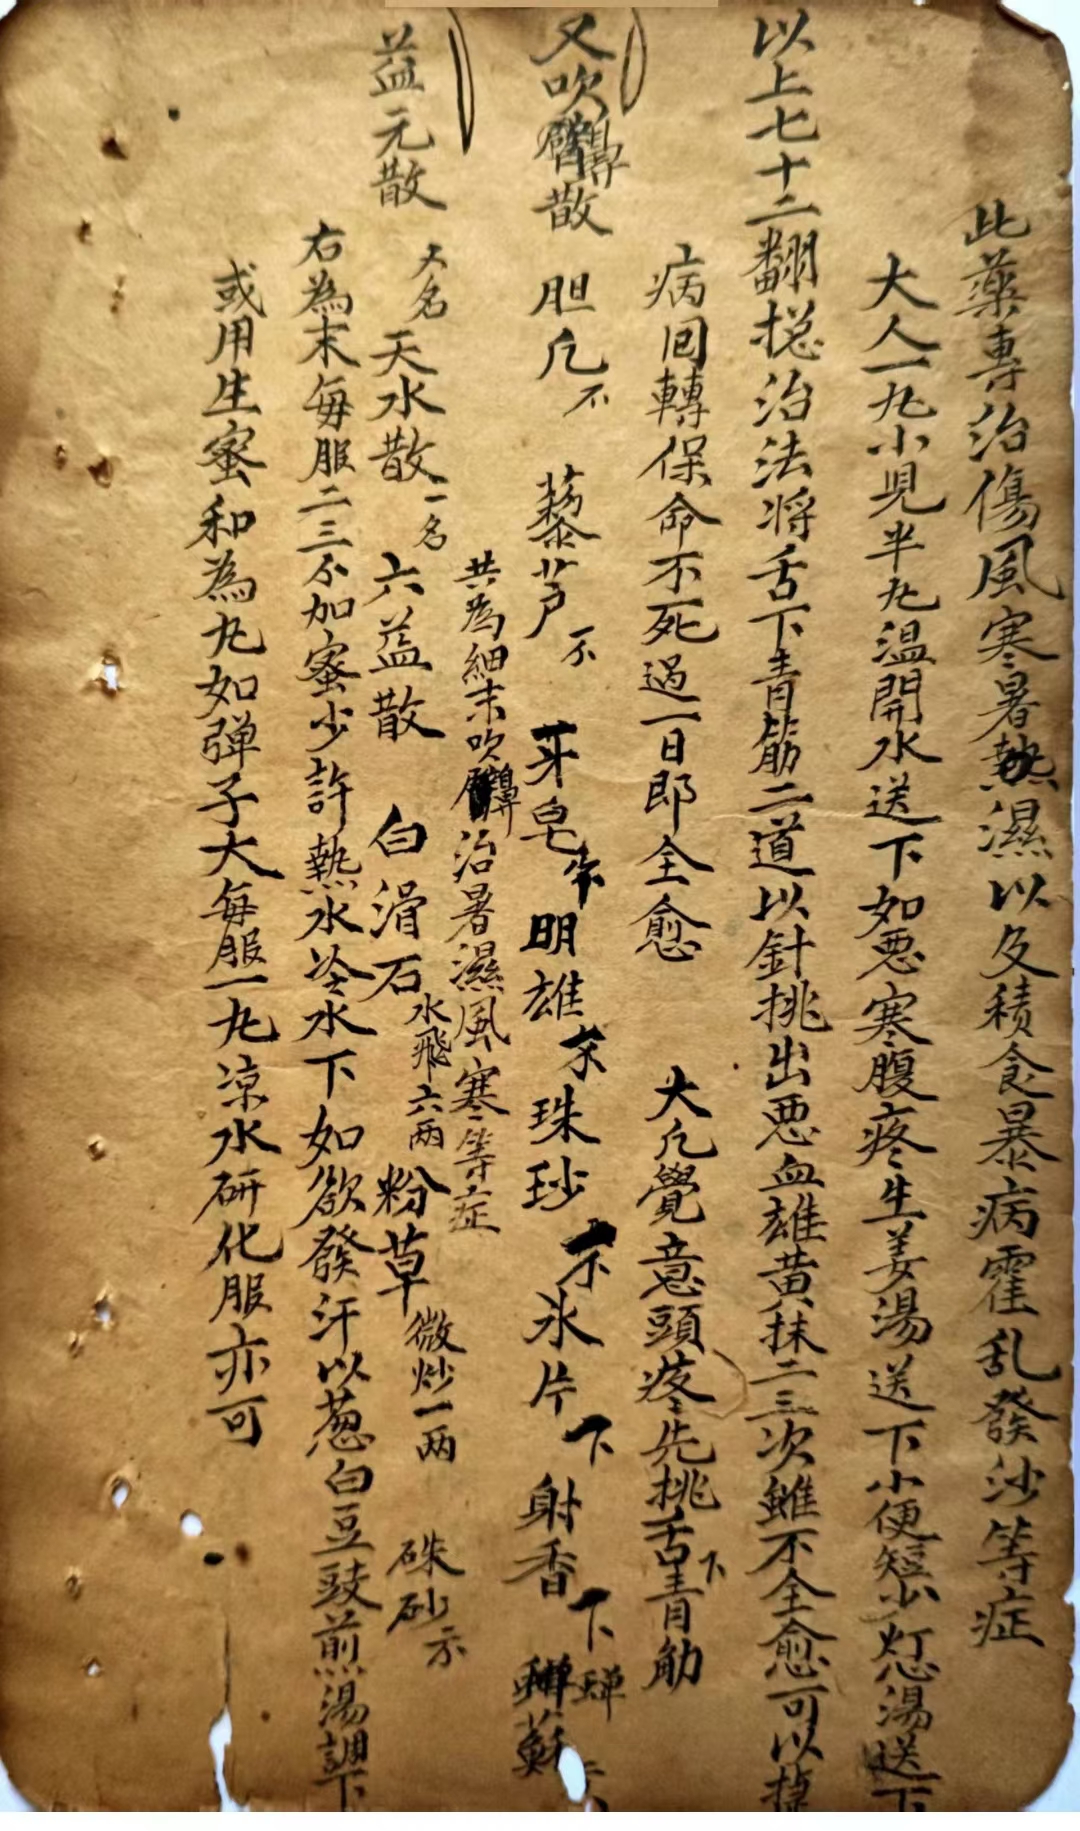 此藥專治傷風寒暑熱濕以及積食暴病霍乱發沙等症
大人一丸小児半丸温開水送下如恶寒腹疼生姜湯送下小便短少灯心湯送下
以上七十二翻捴治法将舌下青筋二道以針挑出恶血雄黄抹二三次雖不全愈可以
病回轉保命不死過一日即全愈 大凡覺意頭疼先挑舌下青筋
又吹鼻散 胆凡 藜芦 芽皂 明雄 珠砂 氷片 射香 蟬蘇
共為細末吹鼻治暑濕風寒等症
益元散 又名天水散一名六益散 白滑石水飛六两 粉草微炒一两 硃砂
右為末每服二三 加蜜少許熱水冷水下如欲發汗以葱白豆豉煎湯調下
或用生蜜和為丸如弹子大每服一丸凉水研化服亦可